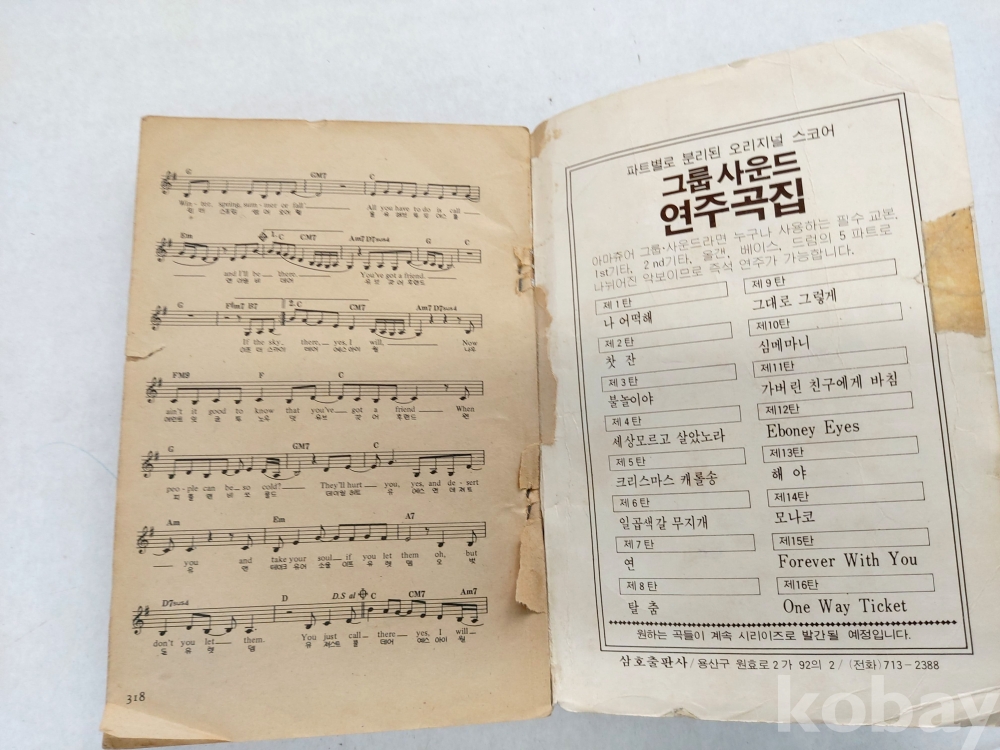 G GM7 C
Win- ter, spring, sum-mer or fall All you have to do is call
Em 1. C CM7 Am7 D7sus4 G C
and I'll be there. You've got a friend.
G F#m7 B7 2. C CM7 Am7 D7sus4
If the sky, there, yes, I will, Now
FM9 F C
ain't it good to know that you've got a friend When
G GM7 C
peo-ple can be so cold? They'll hurt you, yes, and de- sert
Am Em A7
you and take your soul if you let them oh, but
D7sus4 D D.S al C CM7 Am7
don't you let them. You just call there yes, I will
318
파트별로 분리된 오리지널 스코어
그룹 사운드
연주곡집
아마츄어 그룹·사운드라면 누구나 사용하는 필수 교본.
1st기타, 2nd기타, 올갠, 베이스, 드럼의 5 파트로
나뉘어진 악보이므로 즉석 연주가 가능합니다.
제1탄
나 어떡해
제2탄
찻 잔
제3탄
불놀이야
제4탄
세상모르고 살았노라
제5탄
크리스마스 캐롤송
제6탄
일곱색갈 무지개
제7탄
연
제8탄
탈 춤
제9탄
그대로 그렇게
제10탄
심메마니
제11탄
가버린 친구에게 바침
제12탄
Eboney Eyes
제13탄
해 야
제14탄
모나코
제15탄
Forever With You
제16탄
One Way Ticket
원하는 곡들이 계속 시리이즈로 발간될 예정입니다.
삼호출판사/용산구 원효로2가 92의 2/(전화)713-2388
kobay